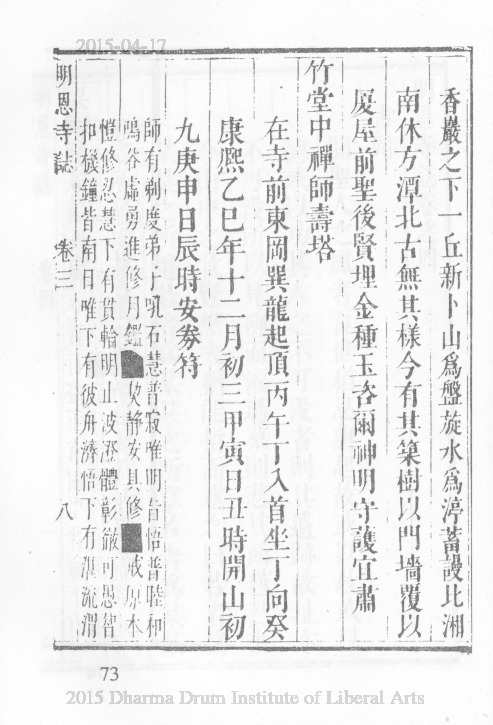 2015-04-17
香巖之下一丘新卜山爲盤旋水爲渟蓄謾比湘
南休方潭北古無其樣今有其築樹以門墻覆以
厦屋前聖後賢埋金種玉咨爾神明守護宜肅
竹堂中禪師壽塔
在寺前東岡巽龍起頂丙午丁入首坐丁向癸
康熙乙巳年十二月初三甲寅日丑時開山初
九庚申日辰時安劵符
師有剃度弟子乳石慧普寂唯明旨悟普睦和
鳴谷虛勇進修月鑑 契靜安具修 戒原本
愷修忍慧下有貫輪明止波澄體彰徹可愚智
扣機鐘皆南日唯下有彼舟濟悟下有湛流渭
明恩寺誌 卷三 八
73
2015 Dharma Drum Institute of Liberal Arts